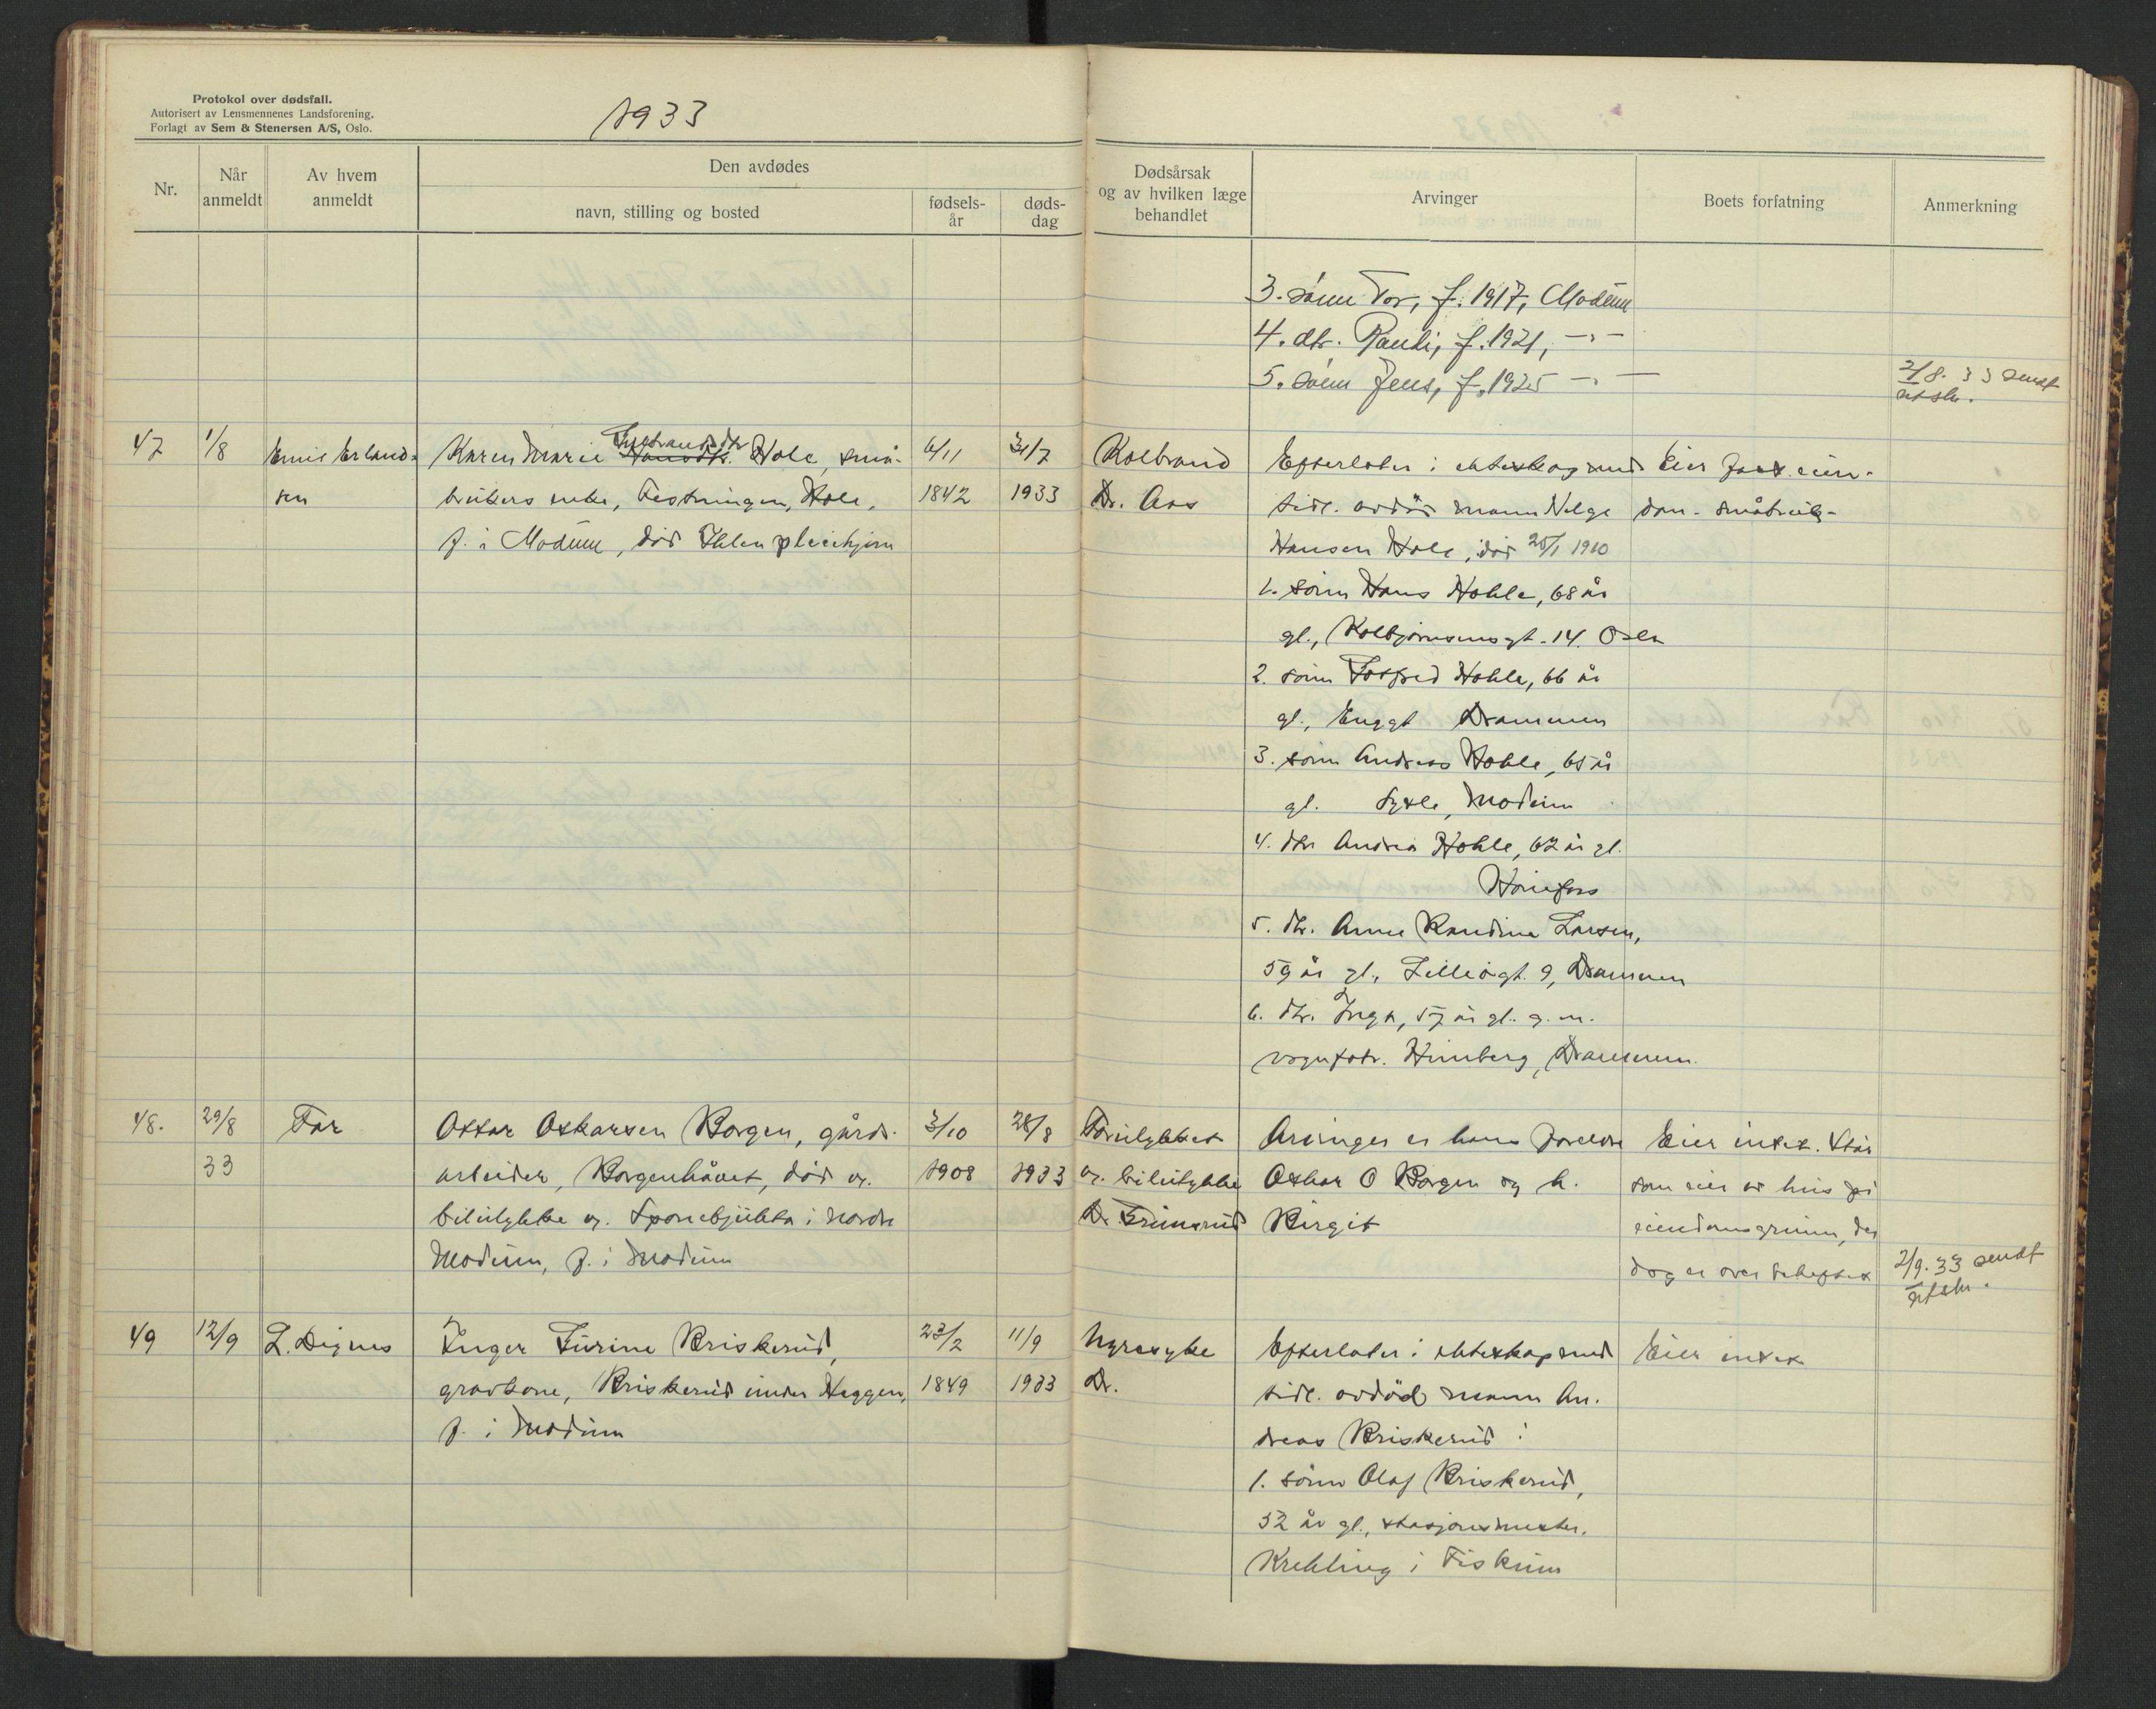 Protokol over dødsfall.
Autorisert av Lensmennenes Landsforening.
Forlagt av Sem & Stenersen A/S, Oslo.
1933
Nr.
Når anmeldt
Av hvem anmeldt
Den avdødes
navn, stilling og bosted
fødselsår
dødsdag
Dødsårsak og av hvilken læge behandlet
Arvinger
Boets forfatning
Anmerkning
3. sønn Tor, f. 1917, Modum
4. dtr. Randi, f. 1921, -"-
5. sønn Jens, f. 1925 -"-
2/8. 33 sendt
utskr.
47
1/8
Emil Erland-
sen
Karen Marie Hansdtr. Hole, små-
brukers enke, Festningen, Hole,
f. i Modum, død Ihlen pleiehjem
6/11
1842
31/7
1933
Kolbrand
Dr. Aas
Efterlater i ekteskap med
tidl. avdød mann Helge
Hansen Hole, død 25/1 1910
1. sønn Hans Hohle, 68 år
gl., Kolbjørnsensgt. 14. Oslo
2. sønn Hohle, 66 år
gl., Enggt Drammen
3. sønn Andreas Hohle, 65 år
gl. Sysle, Modum
4. dtr Andrea Hohle, 62 år gl.
Hønefoss
5. dtr. Anne Randine Larsen,
59 år gl., Lilleøgt. 9, Drammen
6. dtr. Inga, 57 år gl. g. m.
vognfabr. Himberg, Drammen.
Eier fast eien-
dom - småbruk-
48.
29/8
33
Far
Ottar Oskarsen Borgen, gårds-
arbeider, Borgenhåvet, død v.
bilulykke v. i nordre
Modum, f. i Modum
3/10
1908
28/8
1933
Forulykket
v. bilulykke
Dr.
Arvinger er hans foreldre
Oskar O Borgen og h.
Birgit
Eier intet. Står
som eier av hus på
eiendomsgrunn, der
dog er over beheftet
2/9. 33 sendt
utskr.
49
12/9
L. Degnes
Inger Turine Briskerud,
gravkone, Briskerud under Heggen,
f. i Modum
23/2
1849
11/9
1933
Nyresyke
Dr.
Efterlater i ekteskap med
tidl. avdød mann An-
dreas Briskerud:
1. sønn Olaf Briskerud,
52 år gl., stasjonsmester.
Krekling i Fiskum
Eier intet